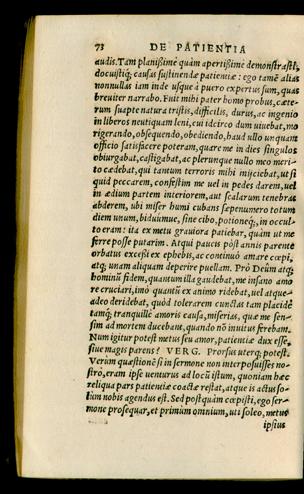 73 DE PATIENTIA
audis. Tam planißimè quàm apertißimè demonstrasti,
docuistiq; causas sustinendæ patientiæ: ego tamẽ alias
nonnullas iam inde usque à puero expertus sum, quas
breuiter narrabo. Fuit mihi pater homo probus, cæte-
rum suapte natura tristis, difficilis, durus, ac ingenio
in liberos neutiquam leni, cui idcirco dum uiuebat, mo
rigerando, obsequendo, obediendo, haud ullo unquam
officio satisfacere poteram, quare me in dies singulos
obiurgabat, castigabat, ac plerunque nullo meo meri-
to cædebat, qui tantum terroris mihi inijciebat, ut si
quid peccarem, confestim me uel in pedes darem, uel
in ædium partem interiorem, aut scalarum tenebras
abderem, ubi miser humi cubans sæpenumero totum
diem unum, biduumue, sine cibo, potioneq;, in occul-
to eram: ita ex metu grauiora patiebar, quàm ut me
ferre posse putarim. Atqui paucis pòst annis parente
orbatus exceßi ex ephebis, ac continuò amare cœpi,
atq; unam aliquam deperire puellam. Prò Deûm atq;
hominũ fidem, quantum illa gaudebat, me insano amo
re cruciari, imò quantũ ex animo ridebat, uel atque
adeo deridebat, quòd tolerarem cunctas tam placidè
tamq; tranquillè amoris causa, miserias, quæ me sen-
sim ad mortem ducebant, quando nõ inuitus ferebam.
Num igitur potest metus seu amor, patientiæ dux esse,
siue magis parens? VERG. Prorsus uterq; potest.
Verùm quæstionẽ si in sermone non interposuisses no-
stro, eram ipse uenturus ad locũ istum, quoniam hæc
reliqua pars patientiæ coactæ restat, atque is actus so-
lum nobis agendus est. Sed postquàm cœpisti, ego ser-
mone prosequar, et primùm omnium, uti soleo, metus
ipsius